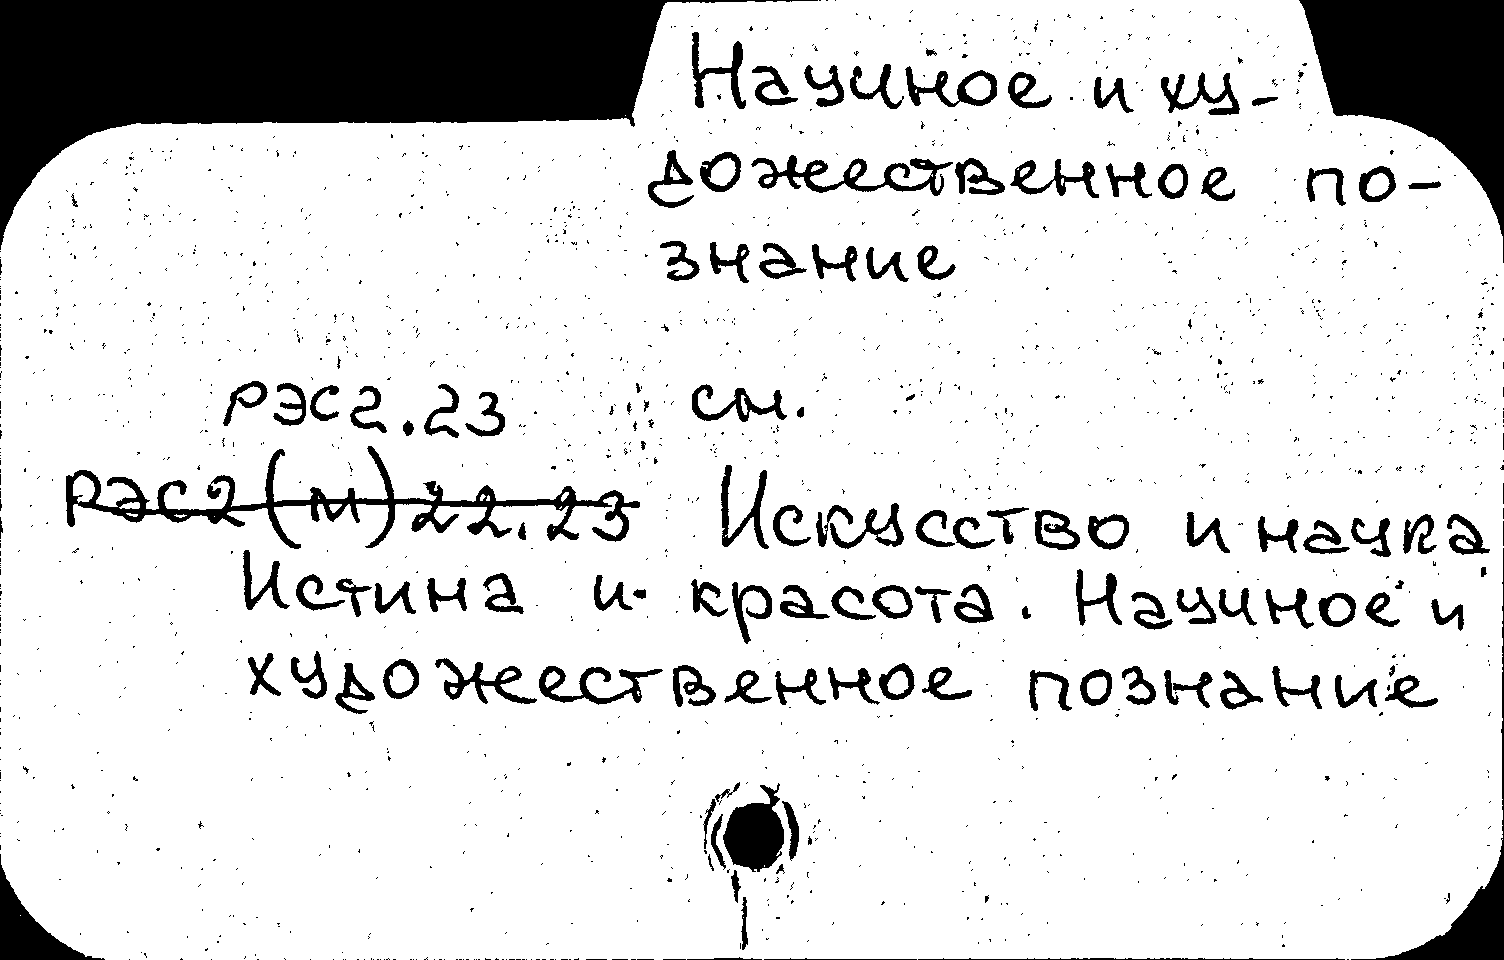 Научное и ху-
дожественное по-
знание
РЭС2.23 см.
РЭС2(м)22.23 Искусство и наука
Истина и красота. Научное и
художественное познание